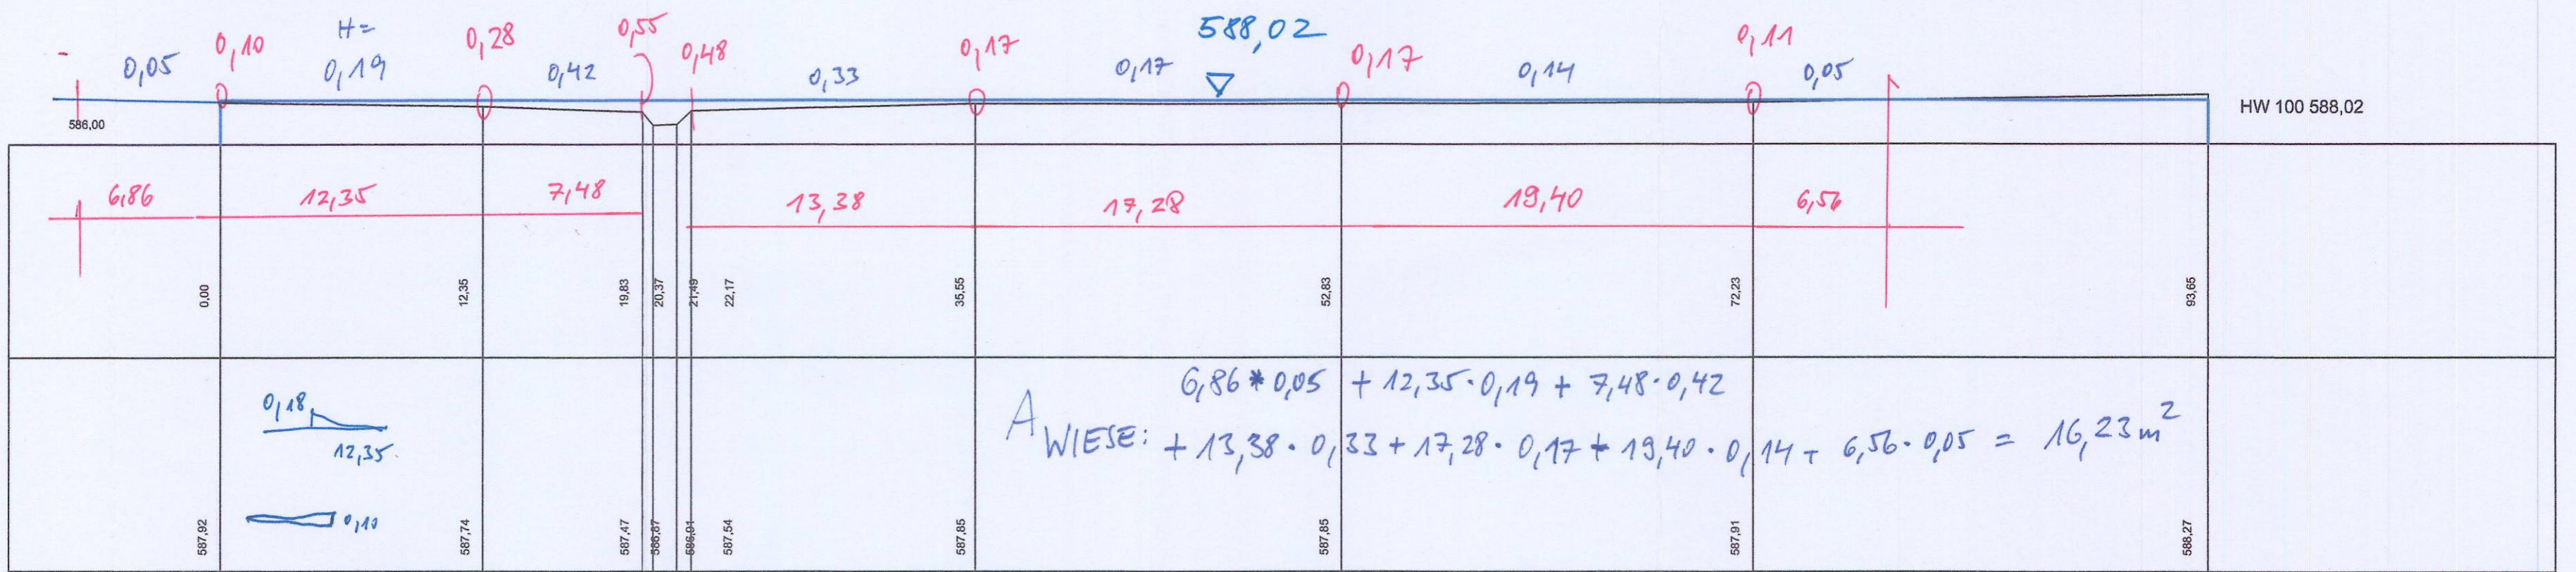 - 0,05 0,10 H= 0,19 0,28 0,42 0,55 0,48 0,33 0,17 0,17 588,02 0,17 0,14 0,11 0,05
586,00
HW 100 588,02
6,86 12,35 7,48 13,38 17,28 19,40 6,56
0,00 12,35 19,83 20,37 21,49 22,17 35,55 52,83 72,23 93,65
0,18
12,35
0,10
6,86 * 0,05 + 12,35·0,19 + 7,48·0,42
A WIESE: + 13,38 · 0,33 + 17,28 · 0,17 + 19,40 · 0,14 + 6,56 · 0,05 = 16,23 m²
587,92 587,74 587,47 586,87 587,54 587,85 587,85 587,91 588,27